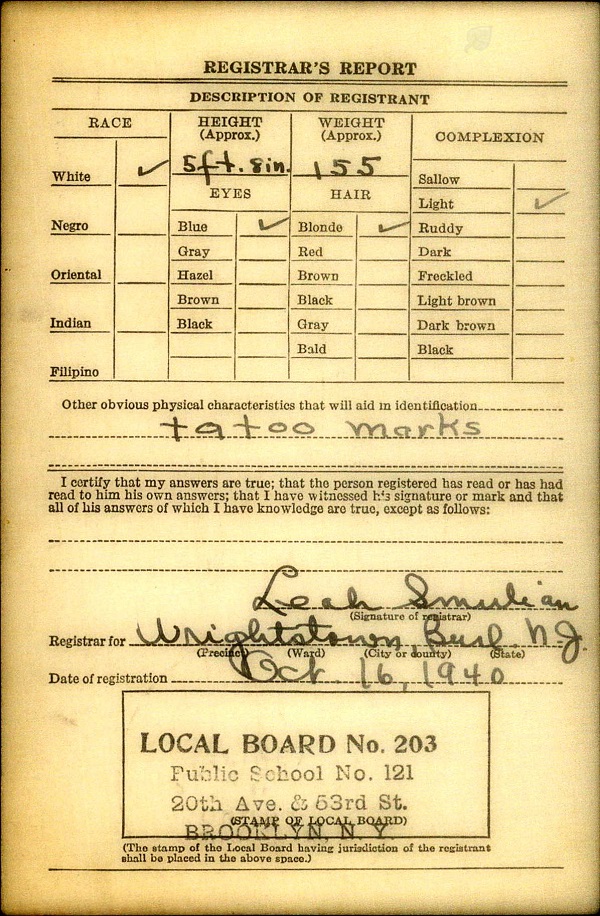 REGISTRAR'S REPORT
DESCRIPTION OF REGISTRANT
RACE
HEIGHT
(Approx.)
WEIGHT
(Approx.)
COMPLEXION
5ft. 8in.
155
White ✓
EYES
HAIR
Sallow
Light ✓
Negro
Blue ✓
Blonde ✓
Ruddy
Gray
Red
Dark
Oriental
Hazel
Brown
Freckled
Brown
Black
Light brown
Indian
Black
Gray
Dark brown
Bald
Black
Filipino
Other obvious physical characteristics that will aid in identification
tatoo marks
I certify that my answers are true; that the person registered has read or has had
read to him his own answers; that I have witnessed his signature or mark and that
all of his answers of which I have knowledge are true, except as follows:
Leah Smulian
(Signature of registrar)
Registrar for Wrightstown, Burl. N.J.
(Precinct) (Ward) (City or county) (State)
Date of registration Oct. 16, 1940
LOCAL BOARD No. 203
Public School No. 121
20th Ave. & 53rd St.
(STAMP OF LOCAL BOARD)
BROOKLYN, N. Y.
(The stamp of the Local Board having jurisdiction of the registrant
shall be placed in the above space.)